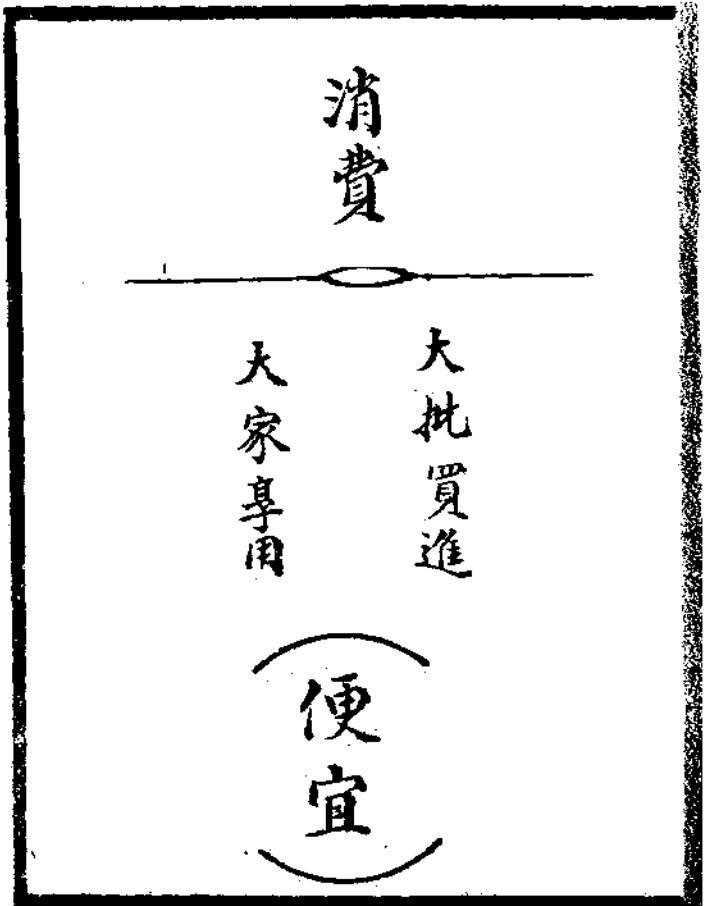 消費
大批買進
大家享用
(便宜)